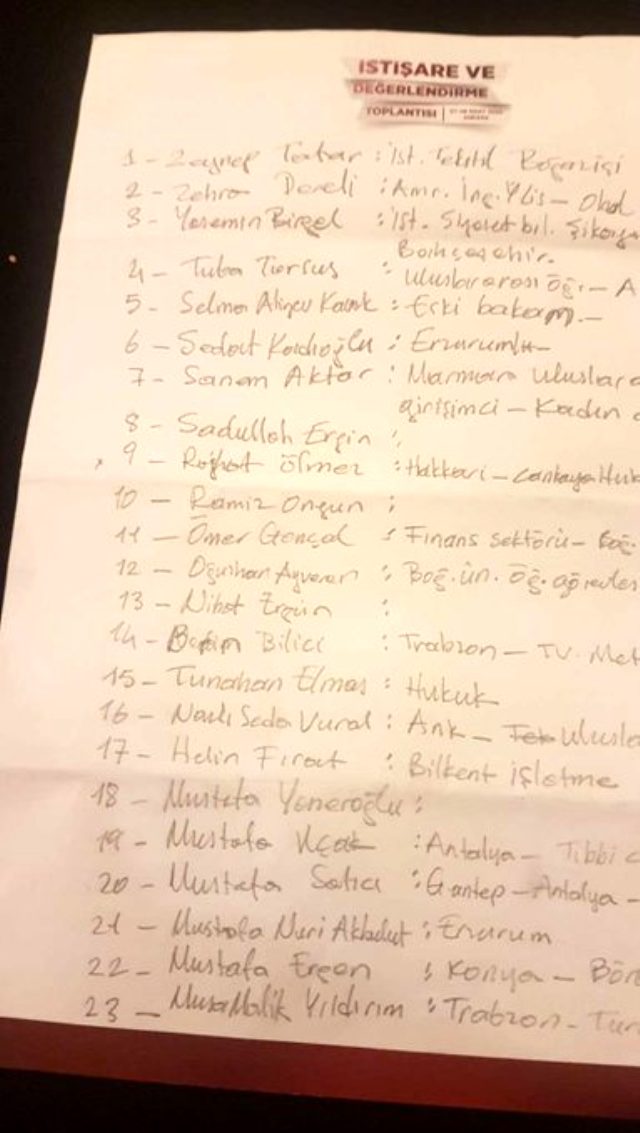 İSTİŞARE VE
DEĞERLENDİRME
TOPLANTISI
1 - Zeynep Tatar : İst. Tekstil Boğaziçi
2 - Zehra Deneli : Amr. İnç. Ylis - Okul
3 - Yasemin Birgel : İst. Siyaset bil.
Bahçeşehir.
4 - Tuba Torsus : Uluslararası Öğr. - A
5 - Selma Aliyev Kavak : Eski bakan. -
6 - Sedat Kadıoğlu : Erzurumlu
7 - Sanem Aktar : Marmara Ulusları
girişimci - Kadın
8 - Sadullah Ergin :
9 - Rojhat Ölmez : Hakkari - Çankaya Huk
10 - Ramiz Ongun :
11 - Ömer Gençal : Finans sektörü - Boğ.
12 - Oğuzhan Ayveren : Boğ. ün. öğ.
13 - Nihat Ergün :
14 - Bilici : Trabzon - TV. Met
15 - Tunahan Elmas : Hukuk
16 - Nazlı Seda Vural : Ank - Ulusla
17 - Helin Fırat : Bilkent işletme
18 - Mustafa Yeneroğlu :
19 - Mustafa Uçak : Antalya - Tıbbi
20 - Mustafa Satıcı : Gantep - Antalya -
21 - Mustafa Nuri Akbulut : Erzurum
22 - Mustafa Ergen : Konya - Bör
23 - Musa Malik Yıldırım : Trabzon - Tur